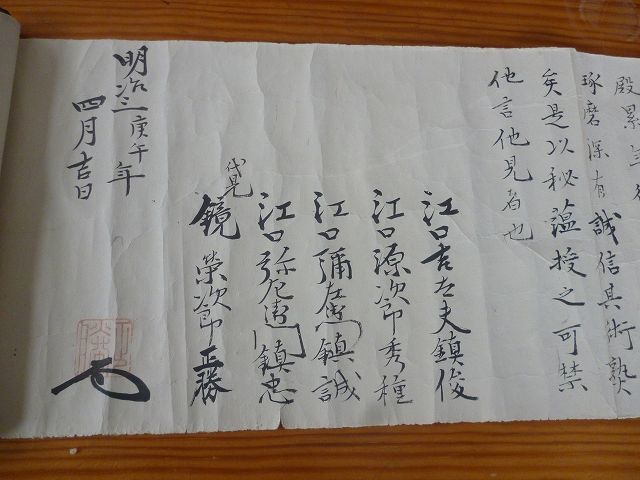 殿累年
琢磨深有誠信其術熟
矣是以秘蘊授之可禁
他言他見者也
江口吉太夫鎮俊
江口源次郎秀種
江口彌左衛門鎮誠
江口弥左衛門鎮忠
代見
鏡榮次郎正勝
明治三庚午年
四月吉日